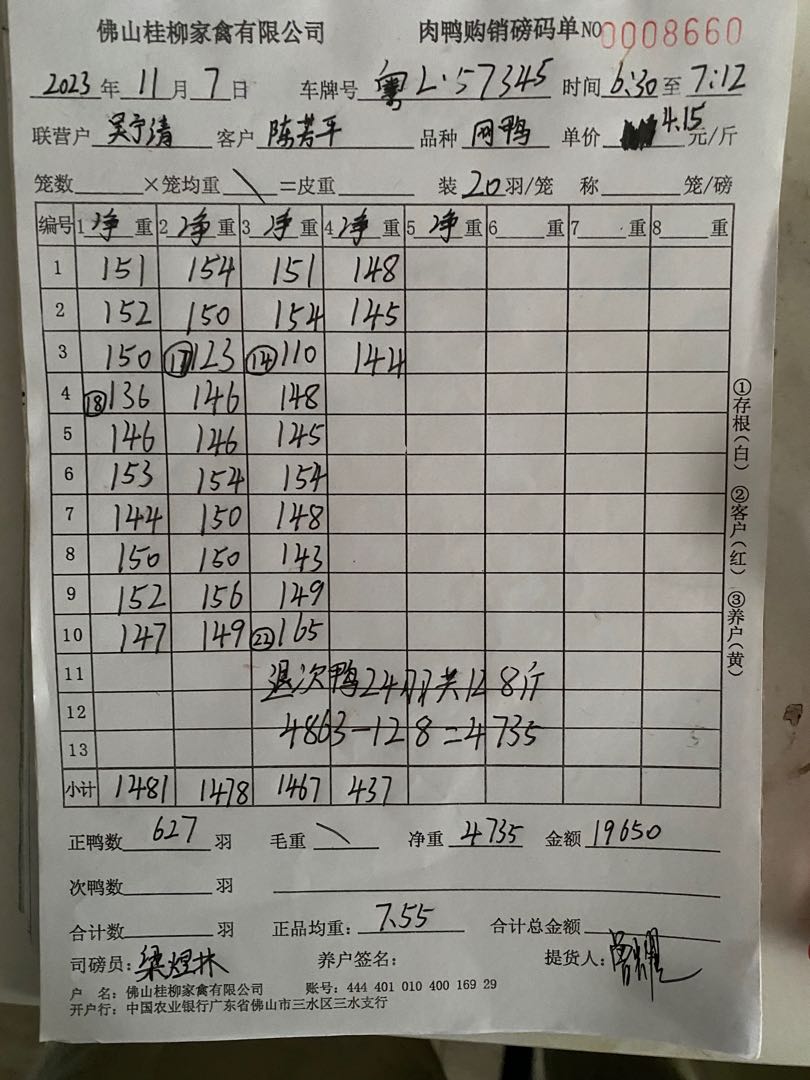 佛山桂柳家禽有限公司 肉鸭购销磅码单NO0008660
2023年11月7日 车牌号 粤L·57345 时间6:30至7:12
联营户 吴宁清 客户 陈若平 品种 网鸭 单价 4.15元/斤
笼数______×笼均重 \ =皮重______ 装20羽/笼 称______笼/磅
编号 1净重 2净重 3净重 4净重 5净重 6重 7重 8重
1 151 154 151 148
2 152 150 154 145
3 150 ⑰123 ⑭110 144
4 ⑱136 146 148
5 146 146 145
6 153 154 154
7 144 150 148
8 150 150 143
9 152 156 149
10 147 149 ㉒165
11 退次鸭24羽共128斤
12 4863-128=4735
13
小计 1481 1478 1467 437
①存根(白) ②客户(红) ③养户(黄)
正鸭数 627 羽 毛重 \ 净重 4735 金额 19650
次鸭数______羽
合计数______羽 正品均重: 7.55 合计总金额______
司磅员: 梁煜林 养户签名: 提货人:
户 名: 佛山桂柳家禽有限公司 账号: 444 401 010 400 169 29
开户行: 中国农业银行广东省佛山市三水区三水支行